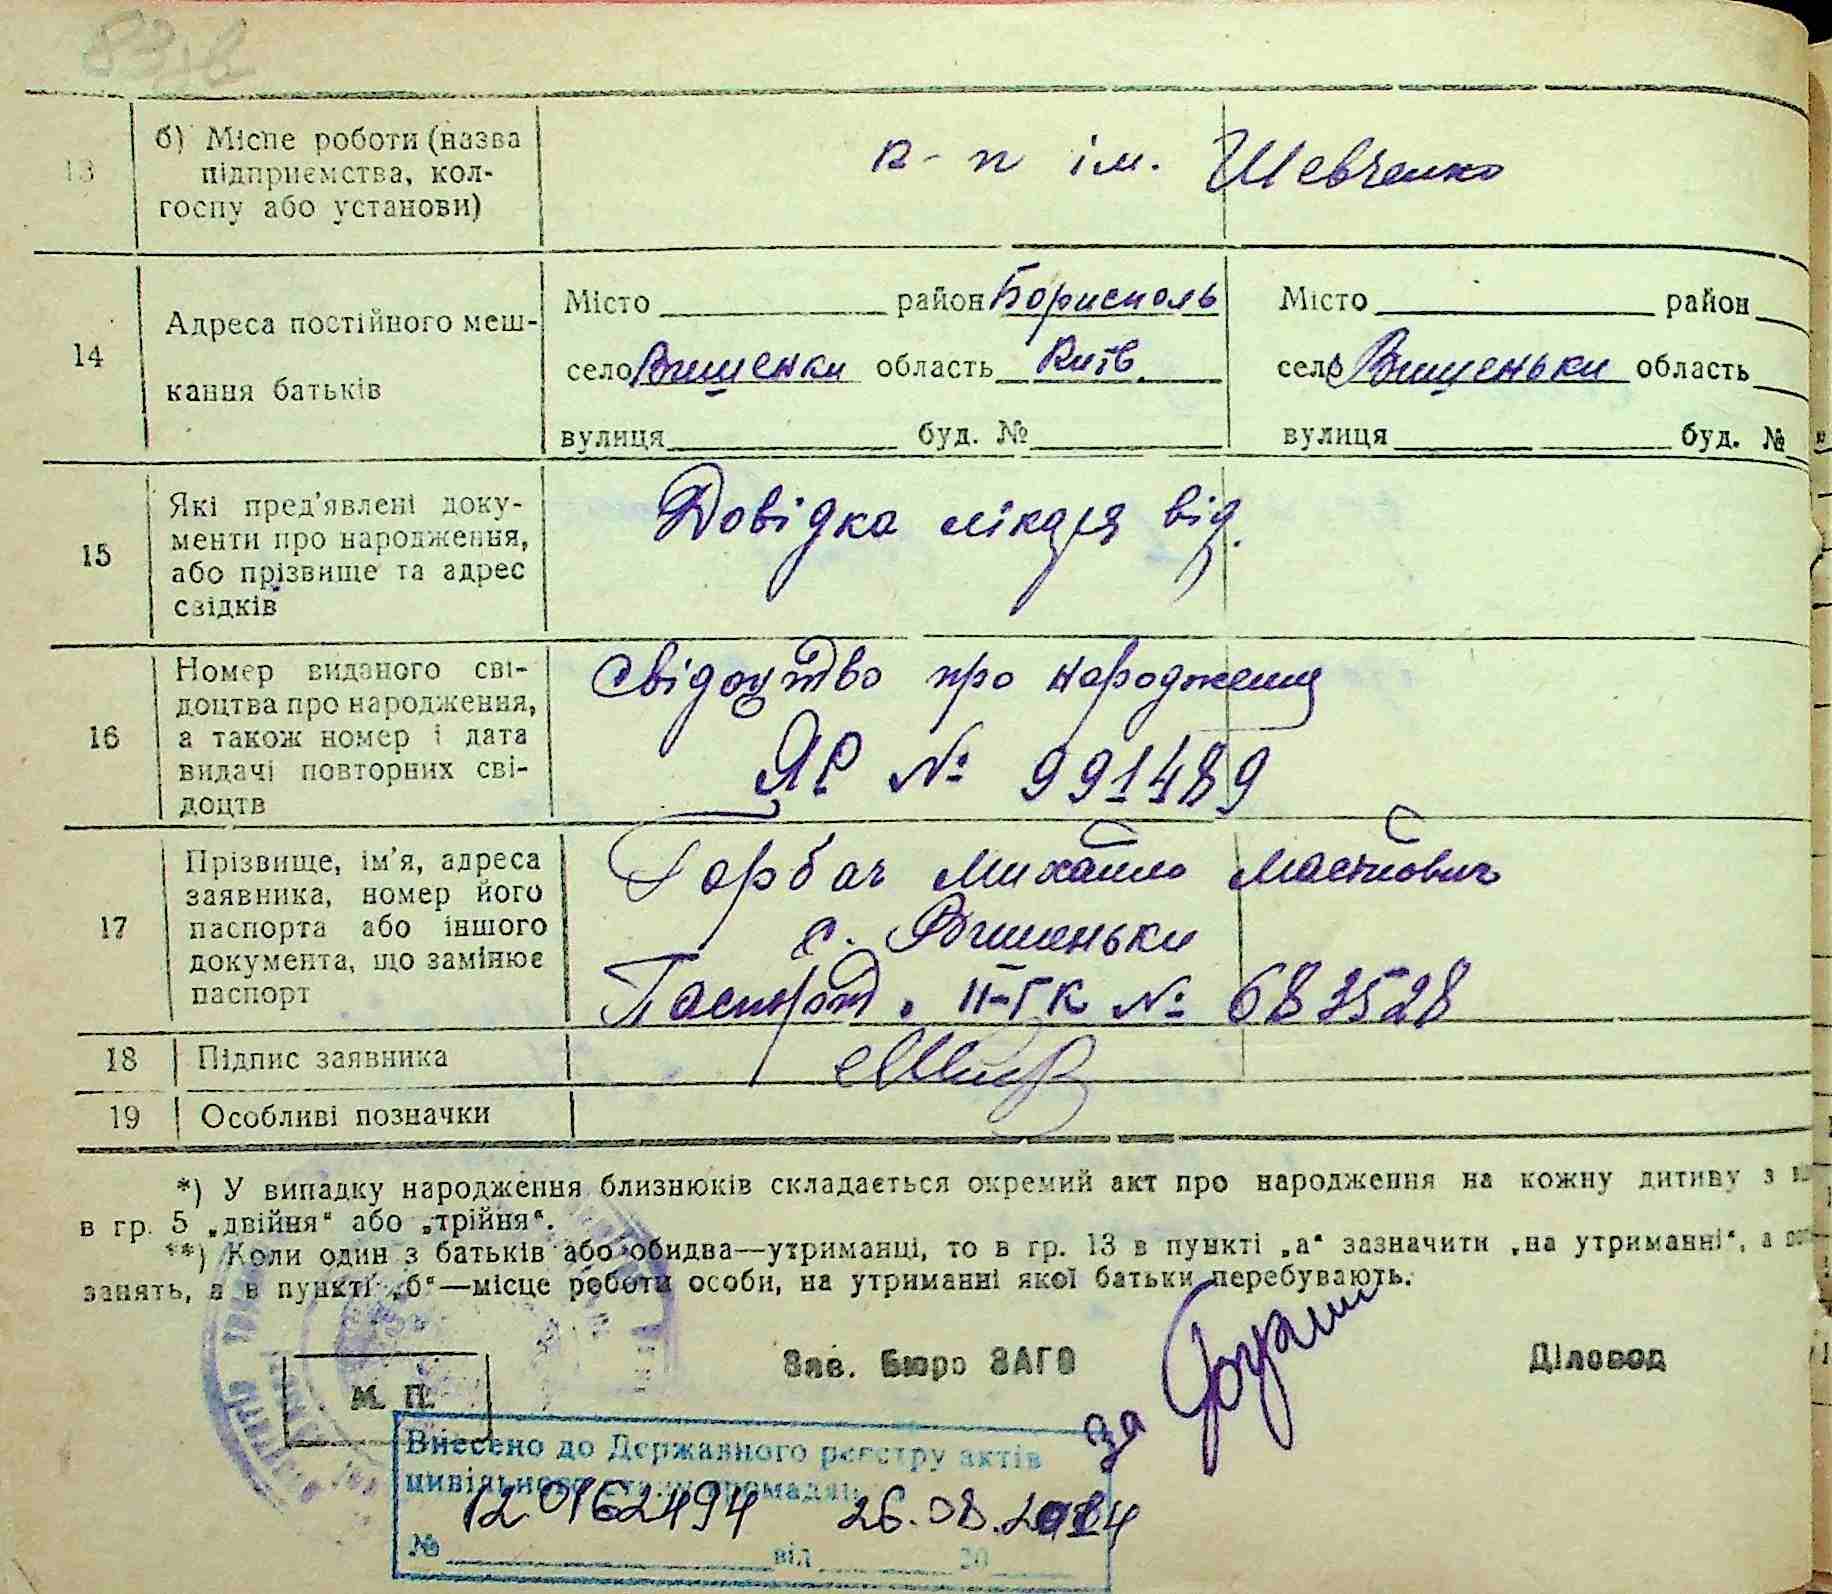 13
б) Місце роботи (назва
підприємства, кол-
госпу або установи)
к-п ім. Шевченко
14
Адреса постійного меш-
кання батьків
Місто район Борисполь
село Вишеньки область Київ
вулиця буд. №
Місто район
село Вишеньки область
вулиця буд. №
15
Які пред'явлені доку-
менти про народження,
або прізвище та адрес
свідків
Довідка лікаря від.
16
Номер виданого сві-
доцтва про народження,
а також номер і дата
видачі повторних сві-
доцтв
Свідоцтво про народження
ЯР № 991489
17
Прізвище, ім'я, адреса
заявника, номер його
паспорта або іншого
документа, що замінює
паспорт
Горбач Михайло
с. Вишеньки
Паспорт. II-ГК № 683528
18
Підпис заявника
19
Особливі позначки
*) У випадку народження близнюків складається окремий акт про народження на кожну дитину з
в гр. 5 „двійня“ або „трійня“.
**) Коли один з батьків або обидва—утриманці, то в гр. 13 в пункті „а“ зазначити „на утриманні“, а
занять, а в пункті „б“—місце роботи особи, на утриманні якої батьки перебувають.
Зав. Бюро ЗАГС
за
Діловод
М. П.
Внесено до Державного реєстру актів
цивільного стану громадян
12 0162494 26.08.2014
№ від 20